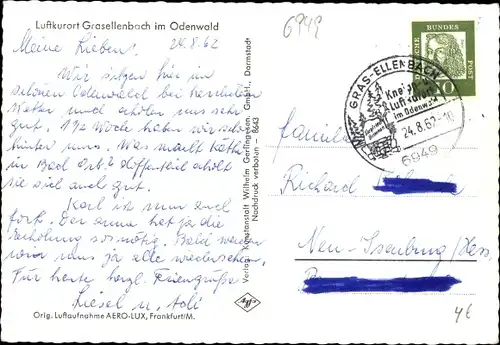 Luftkurort Grasellenbach im Odenwald
24.8.62
Meine Lieben!
Wir sitzen hier im
schönen Odenwald bei herrlichem
Wetter und erholen uns sehr
gut. 1½ Woche haben wir schon
hinter uns. Was macht Käthi
in Bad Orb? hoffentlich erholt
sie sich auch gut.
Karl ist nun auch
fort. Der arme hat ja die
Erholung so nötig. Bald werden
wir uns ja alle wiedersehen.
Für heute herzl. Feriengrüsse
Liesel u. Adi
Orig. Luftaufnahme AERO-LUX, Frankfurt/M.
Verlag: Kunstanstalt Wilhelm Gerling, Ges. GmbH., Darmstadt
Nachdruck verboten - 8643
6949
GRAS-ELLENBACH
Kneipp-
Luftkurort
im Odenwald
24.8.62-18
6949
DEUTSCHE
BUNDES
POST
10
Familie
Richard
Neu-Isenburg/Hess.
46